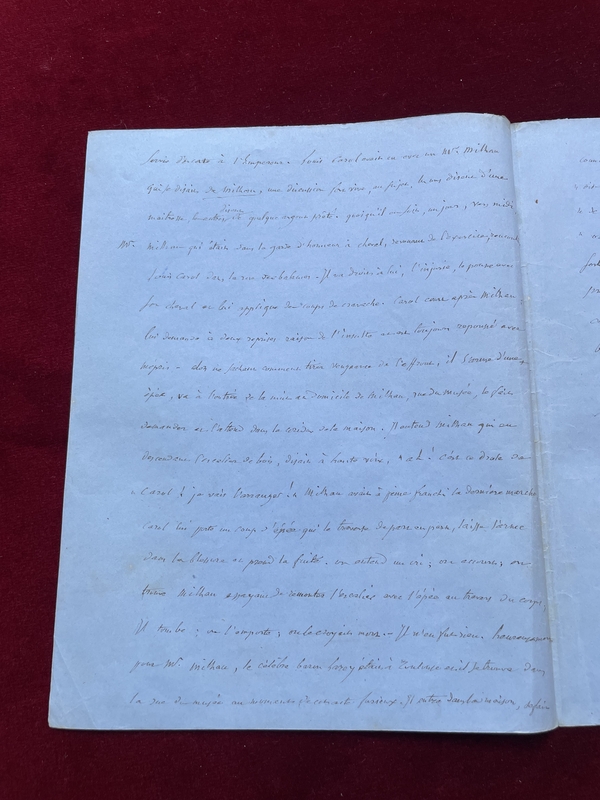 servir d'escorte à l'Empereur. Louis Carol avait eu avec un Mr. Milhau
qui se disait de Milhau, une discussion fort vive, au sujet, les uns disent d'une
maîtresse, les autres, de quelque argent prêté. quoiqu'il en soit, un jour, vers midi
Mr. Milhau qui était dans la garde d'honneur à cheval, revenant de l'exercice, rencontre
Louis Carol dans la rue des balances. Il va droit à lui, l'injurie, le pousse avec
son cheval et lui applique des coups de cravache. Carol court après Milhau
lui demande à deux reprises raison de l'insulte et est toujours repoussé avec
mépris. alors ne sachant comment tirer vengeance de l'affront, il s'arme d'une
épée, va à l'entrée de la nuit au domicile de Milhau, rue du musée, le fait
demander et l'attend dans le corridor de la maison. Il entend Milhau qui en
descendant l'escalier de bois, disait à haute voix, "ah! c'est ce drole de
" Carol! je vais l'arranger! " Milhau avait à peine franchi la dernière marche
Carol lui porte un coup d'épée qui le traverse de part en part, laisse l'arme
dans la blessure et prend la fuite. on entend un cri; on accourt, on
trouve Milhau essayant de remonter l'escalier avec l'épée au travers du corps.
Il tombe; on l'emporte; on le croyait mort. Il n'en fut rien. heureusement
pour Mr. Milhau, le célèbre baron Larrey était à Toulouse et il se trouve dans
la rue du musée au moment de cet acte furieux. Il entre dans la maison,